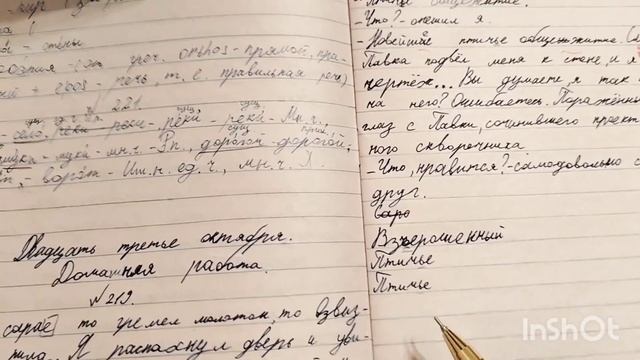 греч. orthos - прямой, пра-
epos - речь, т. е. правильная речь)
221.
село, реки - реки - реки - Мн. ч.,
мн. ч. - Рп., дорогой - дорогой,
ворот - Им. п. ед. ч., мн. ч.
Двадцать третье октября.
Домашняя работа.
№219.
сарае то гремел молоток, то взвиз-
Я распахнул дверь и уви-
- Что? - опешил я.
- Новейшие птичье общежитие.
Павка подвёл меня к стене, и я
чертёж... Вы думаете, я так
на него? Ошибаетесь. Поражённый
глаз с Павки, сочинившего проект
ного скворечника
- Что, нравится? - самодовольно с
друг.
Саро
Взъерошенный
Птичье
Птичье
InShOt